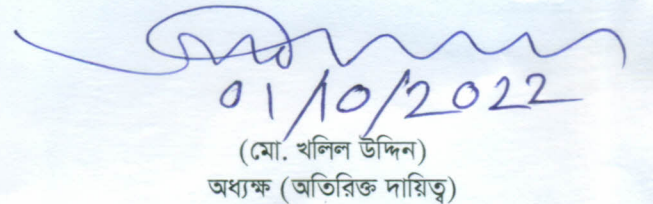 01/10/2022
(মো. খলিল উদ্দিন)
অধ্যক্ষ (অতিরিক্ত দায়িত্ব)